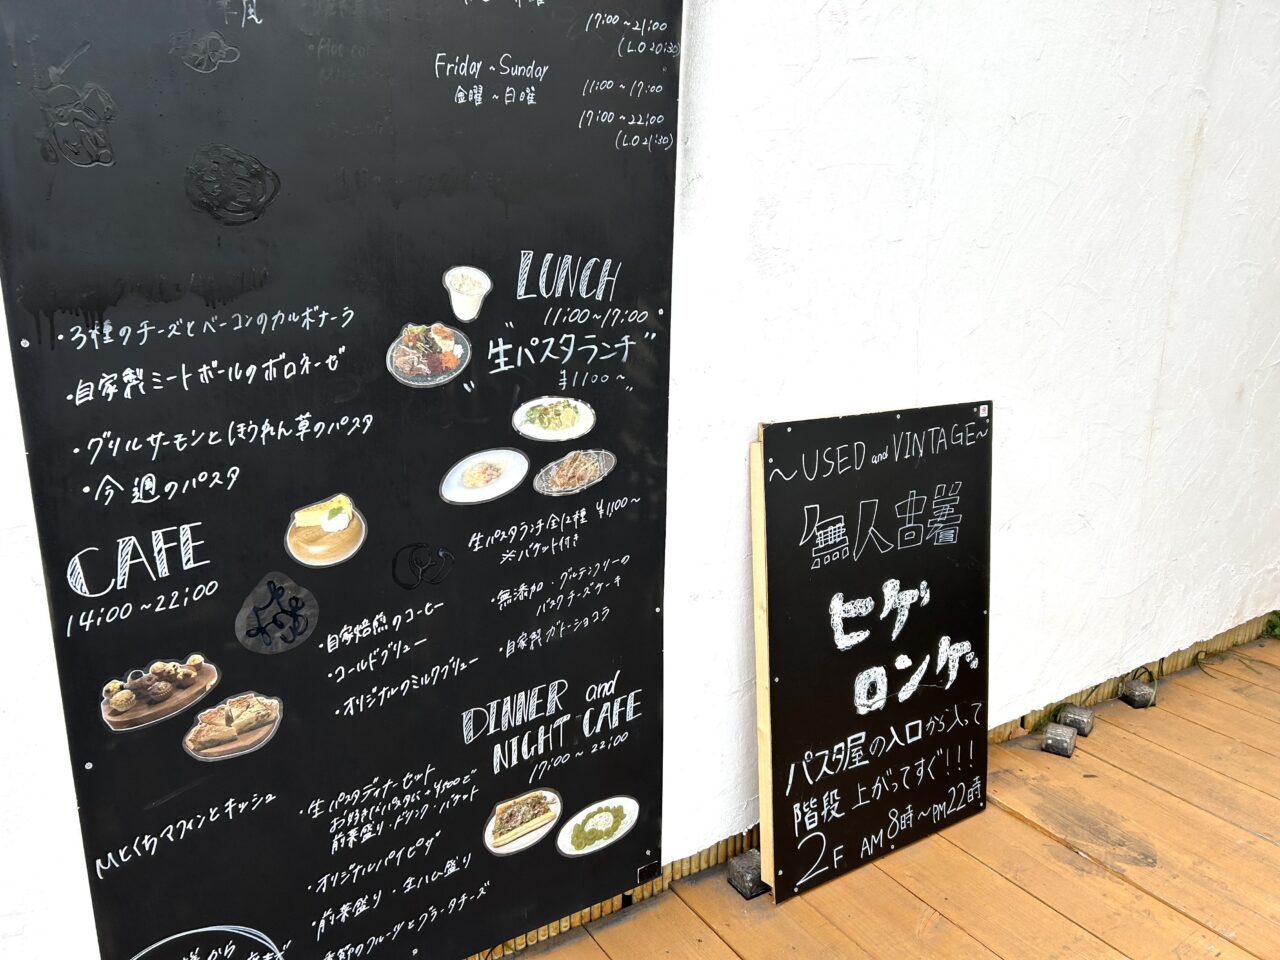 17:00~21:00
(L.O 20:30)
Friday ~ Sunday
金曜 ~ 日曜
11:00~17:00
17:00~22:00
(L.O 21:30)
LUNCH
11:00~17:00
"生パスタランチ"
¥1100~
・3種のチーズとベーコンのカルボナーラ
・自家製ミートボールのボロネーゼ
・グリルサーモンとほうれん草のパスタ
・今週のパスタ
生パスタランチ全12種 ¥1,100~
※バケット付き
CAFE
14:00~22:00
・無添加・グルテンフリーの
バスクチーズケーキ
・自家製ガトーショコラ
・自家焙煎のコーヒー
・コールドブリュー
・オリジナルのミルクブリュー
ひとくちマフィンとキッシュ
DINNER and
NIGHT CAFE
17:00~22:00
・生パスタディナーセット
お好きなパスタに+¥500で
前菜盛り・ドリンク・バケット
・オリジナルパイピザ
・前菜盛り・生ハム盛り
季節のフルーツとブラータチーズ
~USED and VINTAGE~
無人古着
ヒゲ
ロンゲ
パスタ屋の入口から入って
階段上がってすぐ!!!
2F AM 8時~PM 22時